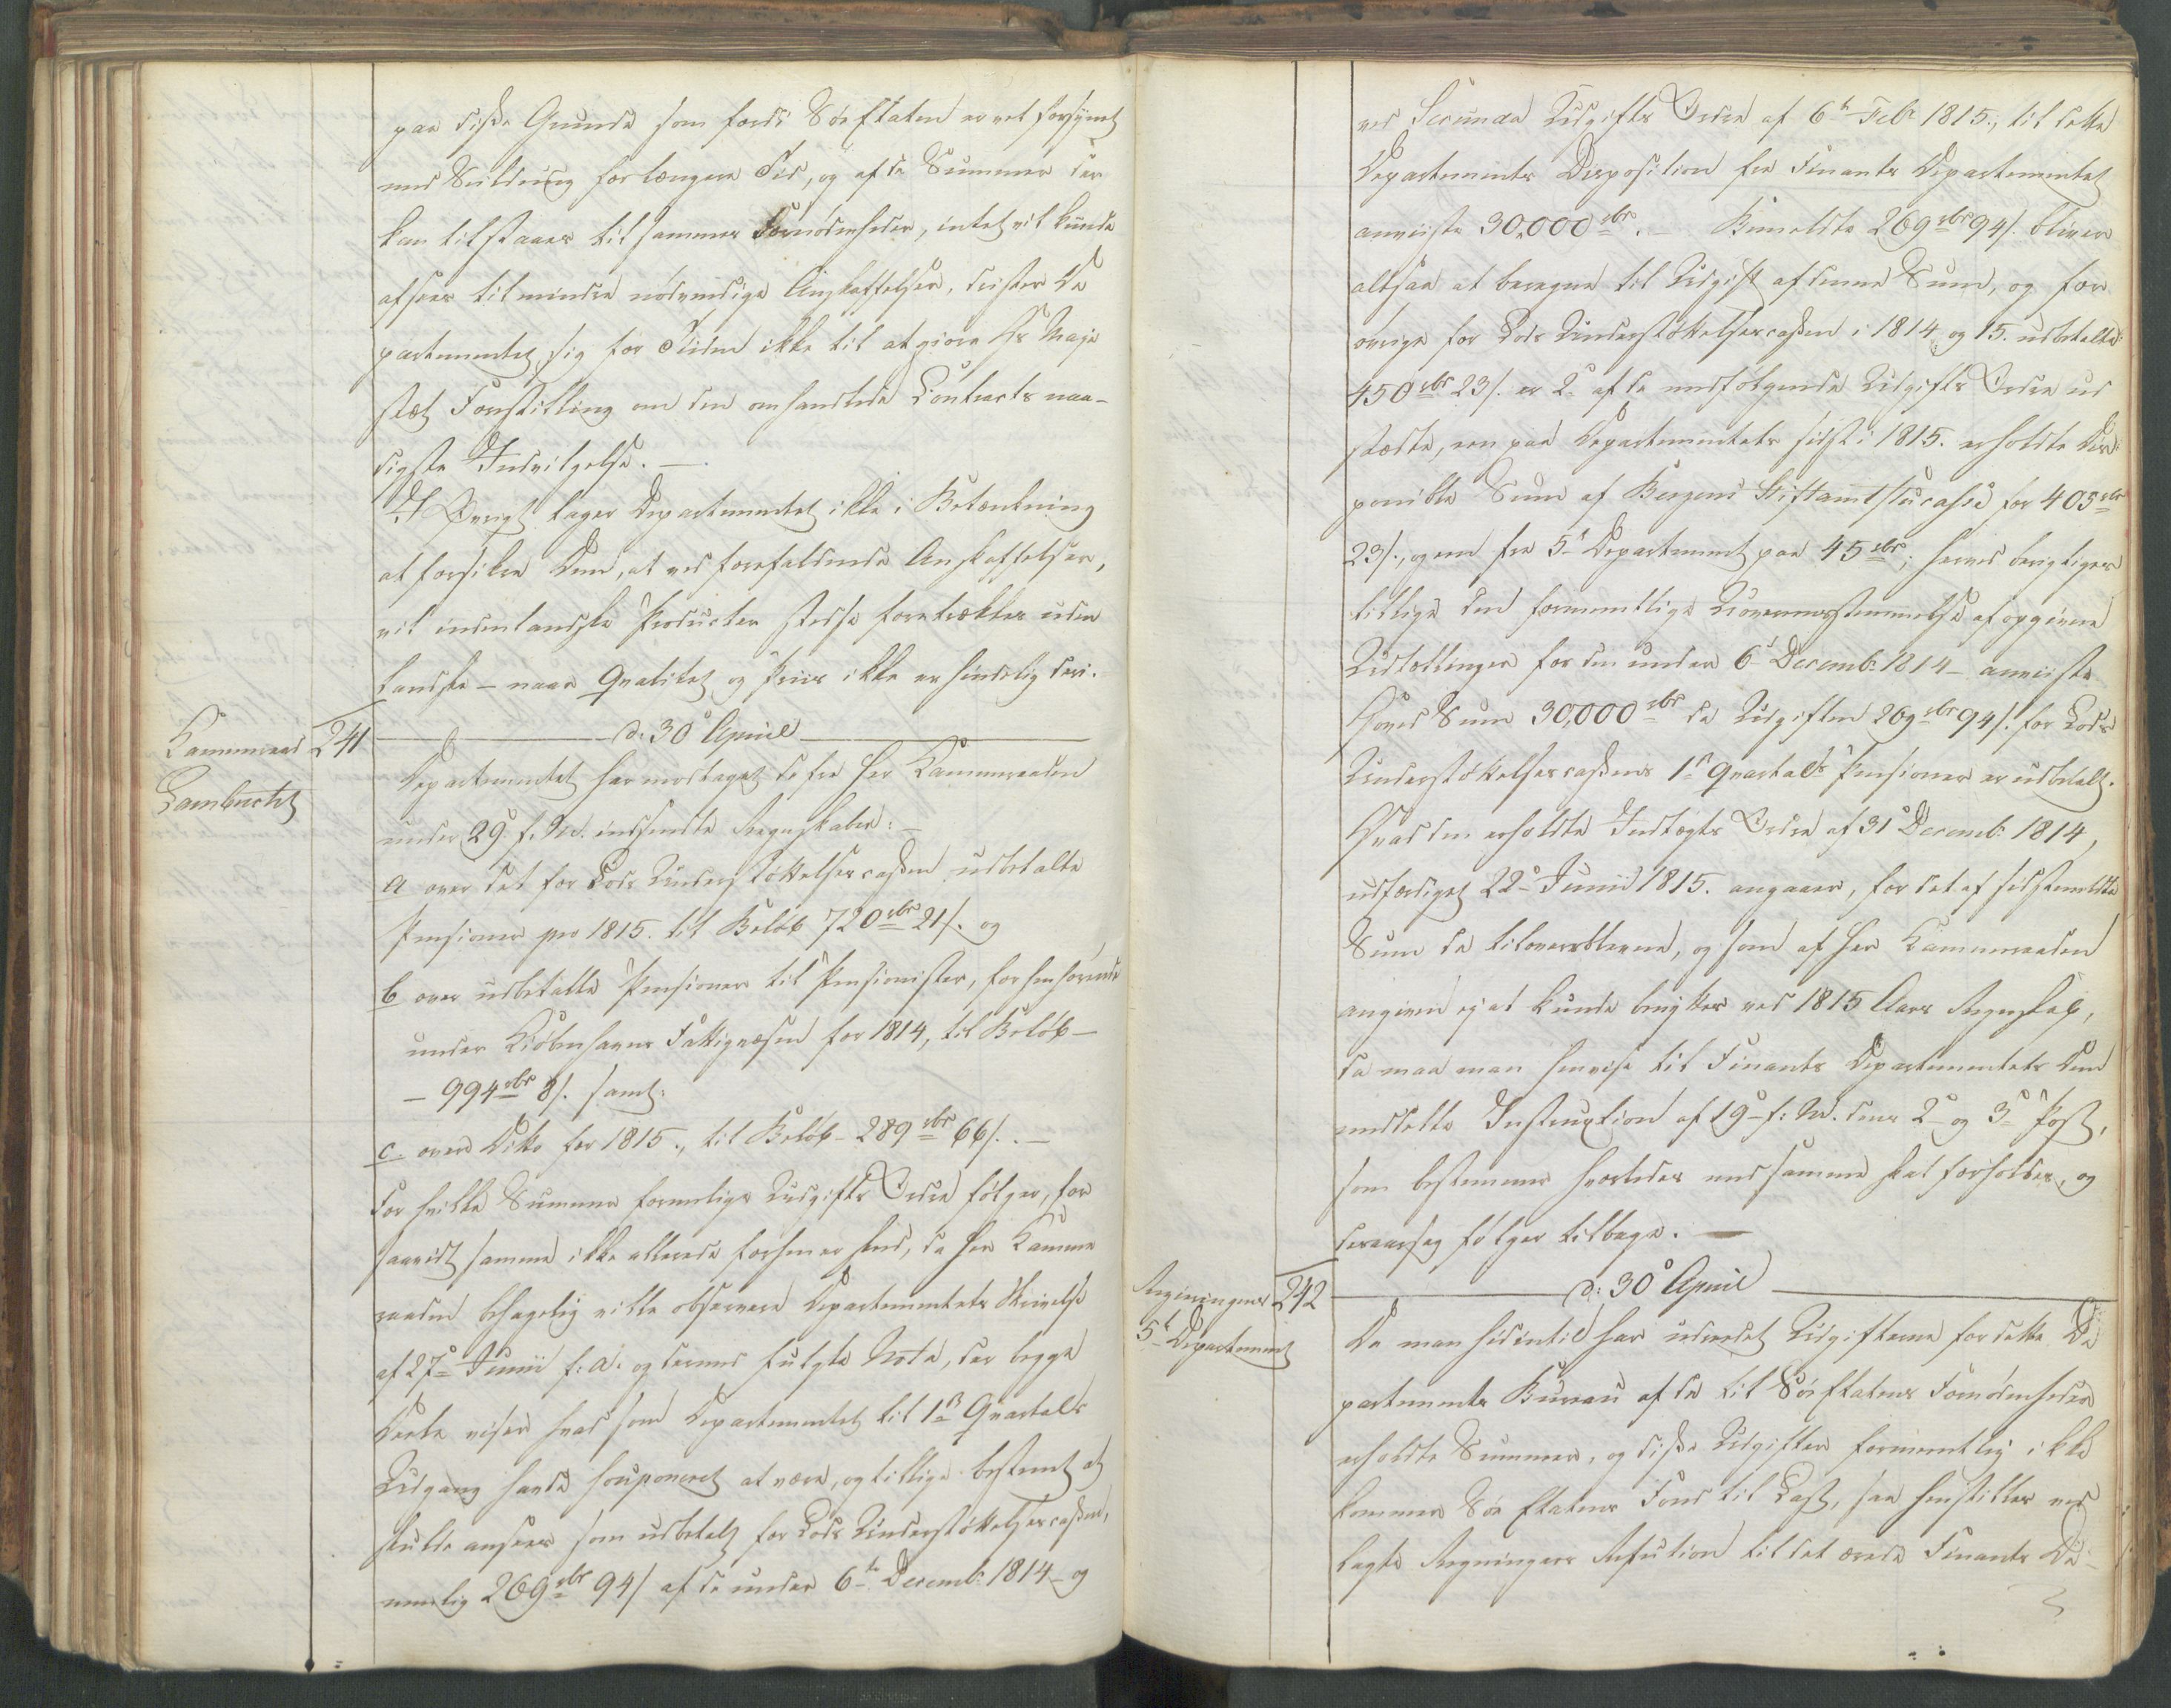 paa disse Grunde som fordi Søe Etaten er vel forsynet
med Seildug for længere Tid, og af de Summer der
kan tilstaaes til sammes Fornødenheder, intet vil kunde
afsees til mindre nødvendige Anskaffelser, drister De
partementet sig for Tiden ikke til at giøre Hs Maje
stæt Forestilling om den omhandlede Contracts naa-
digste Indvilgelse. —
I Øvrigt tager Departementet ikke i Betænkning
at forsikre Dem, at ved forefaldende Anskaffelser,
vil indenlandske Producter stedse foretrækkes uden
landske — naar Qvalitet og Priis ikke er hinderlig deri.
Kammerraad
Lambrecht
241
d: 30te April
Departementet har modtaget de fra Her Kammerraaden
under 29 f. M. indsendte Regnskaber: —
a over det for Lods Understøttelsescassen udbetalte
Pensioner pro 1815. til Beløb 720 rbr 21 s. og
b over udbetalte Pensioner til Pensionister, forhenhørende
under Kiøbenhavns Fattigvæsen for 1814, til Beløb —
— 994 rbr 8 s. samt:
c. over Dito for 1815., til Beløb — 289 rbr 66 s. . —
For hvilke Summer formelige Udgifts Ordre følger, for
saavidt samme ikke allerede forhen er skeed, da Her Kammer
raaden behagelig ville observere Departementets Skrivelse
af 27de Junii f: A: og dermed fulgte Nota, der begge
Deele viser hvad som Departementet til 1ste Qvartals
Udgang havde supponeret at være, og tillige bestemt at
skulde ansees som udbetalt for Lods Understøttelsescassen,
nemlig 269 rbr 94 s af de under 6te Decemb: 1814 og
ved Secunda Udgifts Ordre af 6te Febr 1815., til dette
Departements Disposition fra Finants Departementet
anviiste 30,000 rbr. — Bemeldte 269 rbr 94 s. bliver
altsaa at beregne til Udgift af denne Sum, og for
øvrige for Lods Understøttelsescassen i 1814 og 15. udbetalte
450 rbr 23 s. er 2de af de medfølgende Udgifts Ordre ud
stædte, een paa Departementets sidst i 1815. erholdte Dis
ponible Sum af Bergens Stiftamtstuecasse for 405 rbr
23 s., og een fra 5te Departement paa 45 rbr; herved berigtiges
tillige den formentlige Uoverensstemmelse af opgivne
Udtællinger for den under 6te Decemb: 1814 — anviiste
Hoved Sum 30,000 rbr da Udgiften 269 rbr 94 s. for Lods
Understøttelsescassens 1ste Qvartals Pensioner er udbetalt.
Hvad den erholdte Indtægts Ordre af 31te Decemb: 1814,
udfærdiget 22de Junii 1815. angaaer, for det af sidstmeldte
Sum da tiloversblevne, og som af Her Kammerraaden
angiven ej at kunde benyttes ved 1815 Aars Regnskab,
da maa man henvise til Finants Departementets Dem
meddelte Instruxtion af 19de f: M. dens 2de og 3de Post,
som bestemmer hvorledes med samme skal forholdes, og
deraarsag følger tilbage. —
Regieringens
5te Departement
242
d: 30te April
Da man hidindtil har udredet Udgifterne for dette De
partements Bureau af de til Søe Etatens Fornødenheder
erholdte Summer, og disse Udgifter formeentlig ikke
kommer Søe Etatens Fond til Last, saa henstilles ved
lagte Regningers Refution til det ærede Finants De-